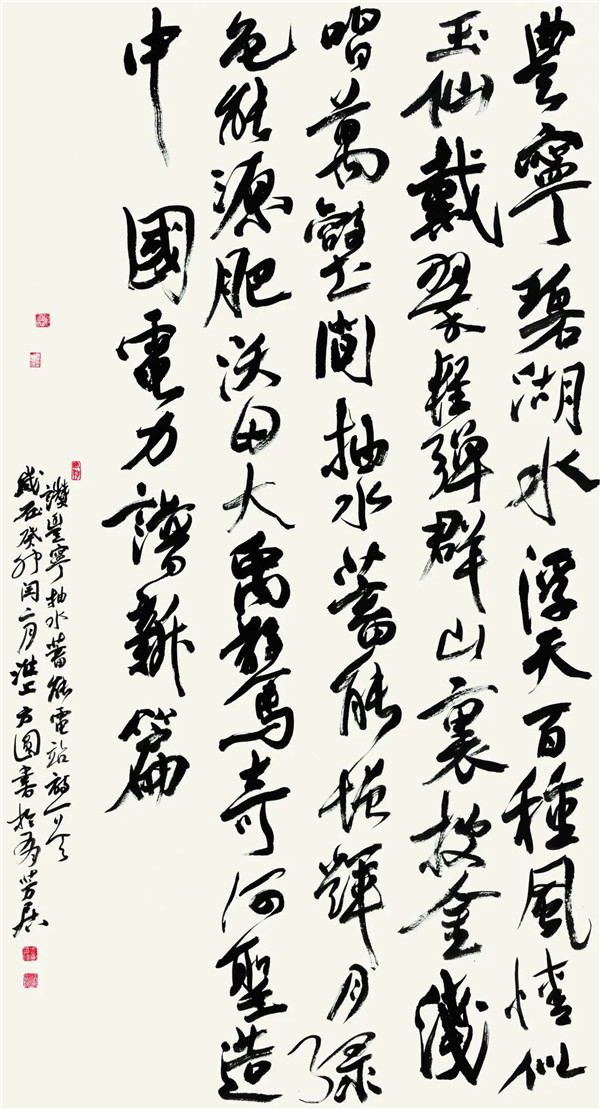 豐寧碧湖水浮天百種風情似
玉仙戴翠輕彈群山裏披金淺
唱萬壑間抽水蓄能增輝月綠
色能源肥沃田大禹驚奇何聖造
中國電力譜新篇
讚豐寧抽水蓄能電站
歲在癸卯閏二月淮上方圓書於勞居